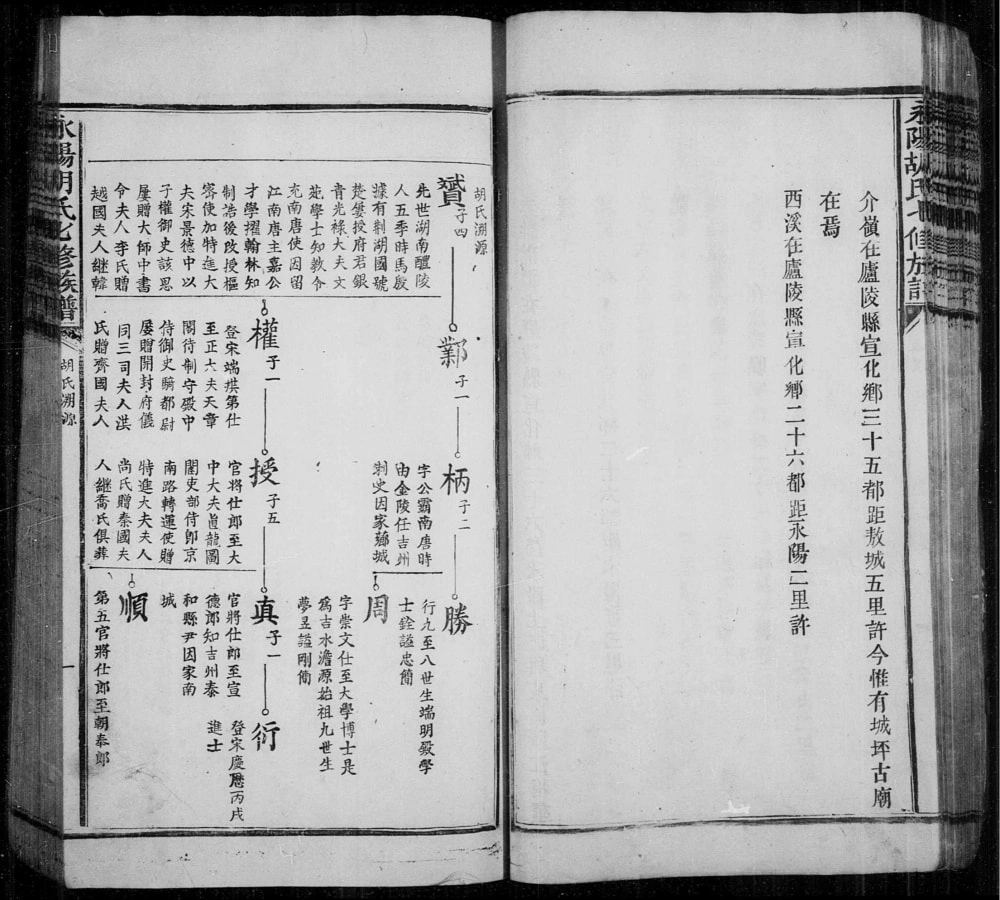 永陽胡氏七修族譜
介嶺在廬陵縣宣化鄉三十五都距敖城五里許今惟有城坪古廟
在焉
西溪在廬陵縣宣化鄉二十六都距永陽二里許
胡氏溯源
贇 子四
先世湖南醴陵
人五季時馬殷
據有荆湖國號
楚簍授府君銀
青光祿大夫文
苑學士知教令
充南唐使因留
江南唐主嘉公
才學擢翰林知
制誥後改授樞
密使加特進大
夫宋景德中以
子權御史該恩
屢贈大師中書
令夫人李氏贈
越國夫人繼韓
氏贈齊國夫人
鄴 子一
權 子一
登宋端拱第仕
至正六夫天章
閣待制守殿中
侍御史騎都尉
屢贈開封府儀
同三司夫人洪
柄 子二
字公霸南唐時
由金陵任吉州
刺史因家薌城
授 子五
官將仕郎至大
中大夫直龍圖
閣吏部侍郎京
南路轉運使贈
特進大夫夫人
尚氏贈秦國夫
人繼喬氏俱葬
勝
行九至八世生端明殿學
士銓謚忠簡
周
字崇文仕至大學博士是
為吉水澹源始祖九世生
夢昱謚剛簡
真 子一
官將仕郎至宣
德郎知吉州泰
和縣尹因家南
城
順
第五官將仕郎至朝奉郎
衍
登宋慶歷丙戌
進士
永陽胡氏七修族譜
胡氏溯源
一